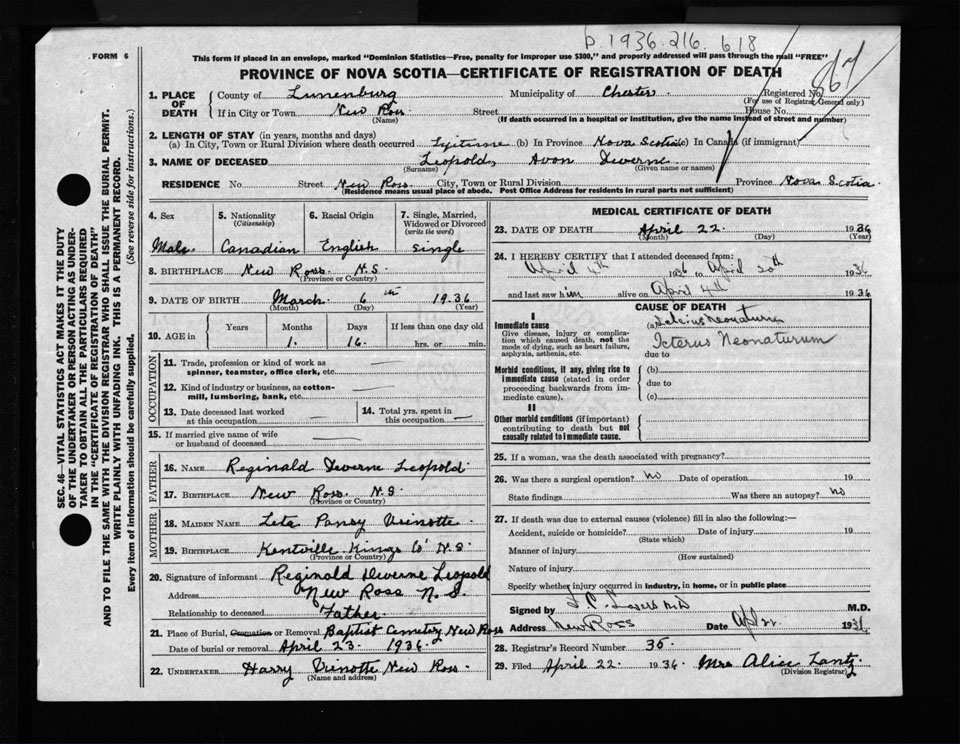 p. 1936. 216. 618
FORM 6
This form if placed in an envelope, marked "Dominion Statistics—Free, penalty for improper use $300," and properly addressed will pass through the mail "FREE"
PROVINCE OF NOVA SCOTIA—CERTIFICATE OF REGISTRATION OF DEATH
867
1. PLACE OF DEATH
County of Lunenburg Municipality of Chester Registered No.
(For use of Registrar General only)
If in City or Town New Ross Street House No.
(Name) (If death occurred in a hospital or institution, give the name instead of street and number)
2. LENGTH OF STAY (in years, months and days)
(a) In City, Town or Rural Division where death occurred Lifetime (b) In Province Nova Scotia (c) In Canada (if immigrant)
3. NAME OF DECEASED Leopold, Avon Deverne
(Surname) (Given name or names)
RESIDENCE No. Street New Ross City, Town or Rural Division Province Nova Scotia
(Residence means usual place of abode. Post Office Address for residents in rural parts not sufficient)
SEC. 46—VITAL STATISTICS ACT MAKES IT THE DUTY
OF THE UNDERTAKER OR PERSON ACTING AS UNDER-
TAKER TO OBTAIN ALL THE PARTICULARS REQUIRED
IN THE "CERTIFICATE OF REGISTRATION OF DEATH"
AND TO FILE THE SAME WITH THE DIVISION REGISTRAR WHO SHALL ISSUE THE BURIAL PERMIT.
WRITE PLAINLY WITH UNFADING INK. THIS IS A PERMANENT RECORD.
Every item of information should be carefully supplied. (See reverse side for instructions.)
4. Sex 5. Nationality (Citizenship) 6. Racial Origin 7. Single, Married, Widowed or Divorced (write the word)
Male Canadian English single
8. BIRTHPLACE New Ross N.S.
(Province or Country)
9. DATE OF BIRTH March 6th 1936
(Month) (Day) (Year)
10. AGE in Years Months Days If less than one day old
1. 16. hrs. or min.
OCCUPATION
11. Trade, profession or kind of work as
spinner, teamster, office clerk, etc.
12. Kind of industry or business, as cotton-
mill, lumbering, bank, etc.
13. Date deceased last worked at this occupation 14. Total yrs. spent in this occupation
15. If married give name of wife
or husband of deceased
FATHER
16. NAME Reginald Deverne Leopold
17. BIRTHPLACE New Ross N.S
(Province or Country)
MOTHER
18. MAIDEN NAME Leta Pansy Veinotte
19. BIRTHPLACE Kentville Kings Co N.S
(Province or Country)
20. Signature of informant Reginald Deverne Leopold
Address New Ross N.S.
Relationship to deceased Father
21. Place of Burial, Cremation or Removal Baptist Cemetery New Ross
Date of burial or removal April 23 1936
22. UNDERTAKER Harry Veinotte New Ross
(Name and address)
MEDICAL CERTIFICATE OF DEATH
23. DATE OF DEATH April 22 1936
(Month) (Day) (Year)
24. I HEREBY CERTIFY that I attended deceased from:
April 4th 1936 to April 20th 1936
and last saw him alive on April 4th 1936
CAUSE OF DEATH
I
Immediate cause
Give disease, injury or complica-
tion which caused death, not the
mode of dying, such as heart failure,
asphyxia, asthenia, etc.
(a) Neonaturum
Icterus Neonaturum
due to
Morbid conditions, if any, giving rise to
immediate cause (stated in order
proceeding backwards from im-
mediate cause).
(b)
due to
(c)
II
Other morbid conditions (if important)
contributing to death but not
causally related to immediate cause.
25. If a woman, was the death associated with pregnancy?
26. Was there a surgical operation? no Date of operation 19
State findings Was there an autopsy? no
27. If death was due to external causes (violence) fill in also the following:—
Accident, suicide or homicide? Date of injury 19
(State which)
Manner of injury
(How sustained)
Nature of injury
Specify whether injury occurred in industry, in home, or in public place
Signed by M.D.
Address New Ross Date Apl 22 1936
28. Registrar's Record Number 35.
29. Filed April 22 1936 Mrs Alice Lantz
(Division Registrar)